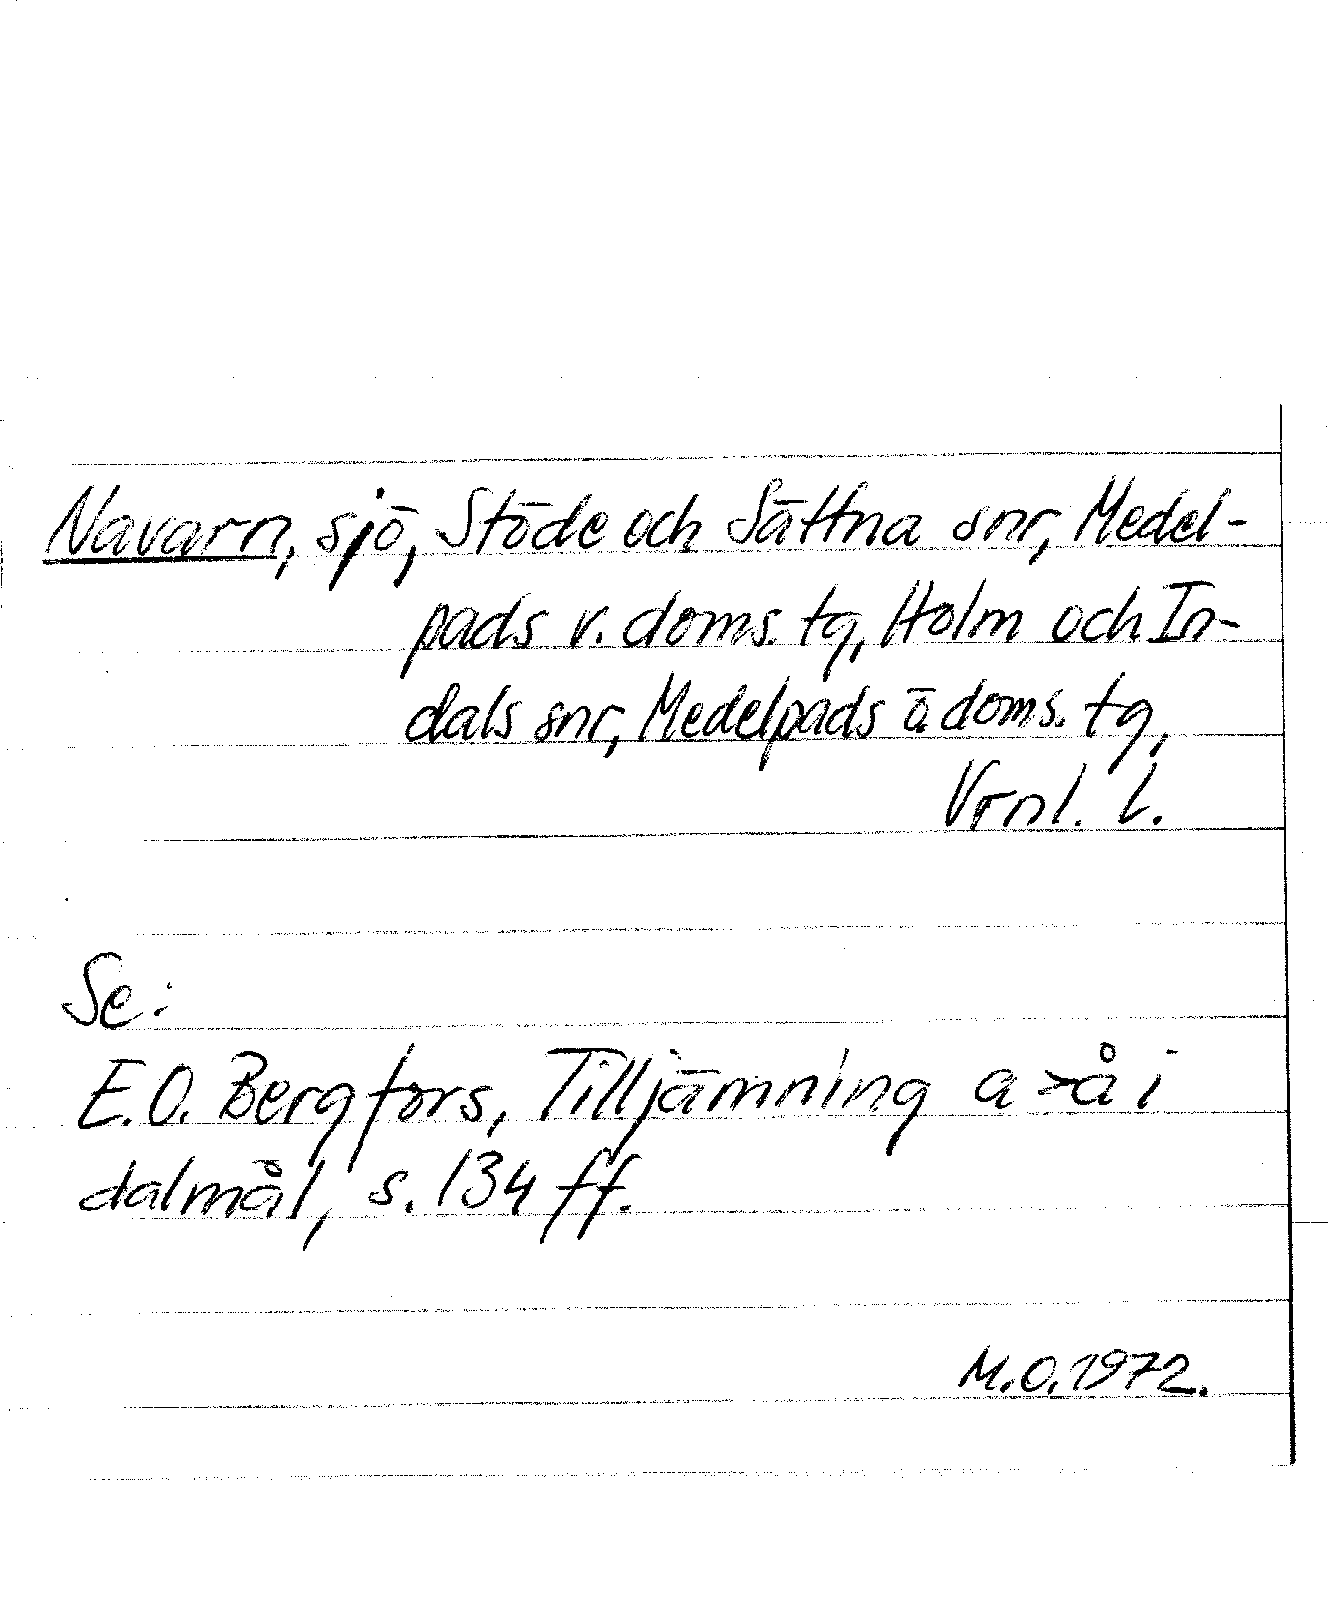 Navarn, sjö, Stöde och Sättna snr, Medel-
pads v. doms. tg, Holm och In-
dals snr, Medelpads ö. doms. tg,
Vrnl. l.
Se:
E.O. Bergfors, Tilljämning a>å i
dalmål, s. 134 ff.
M.O. 1972.